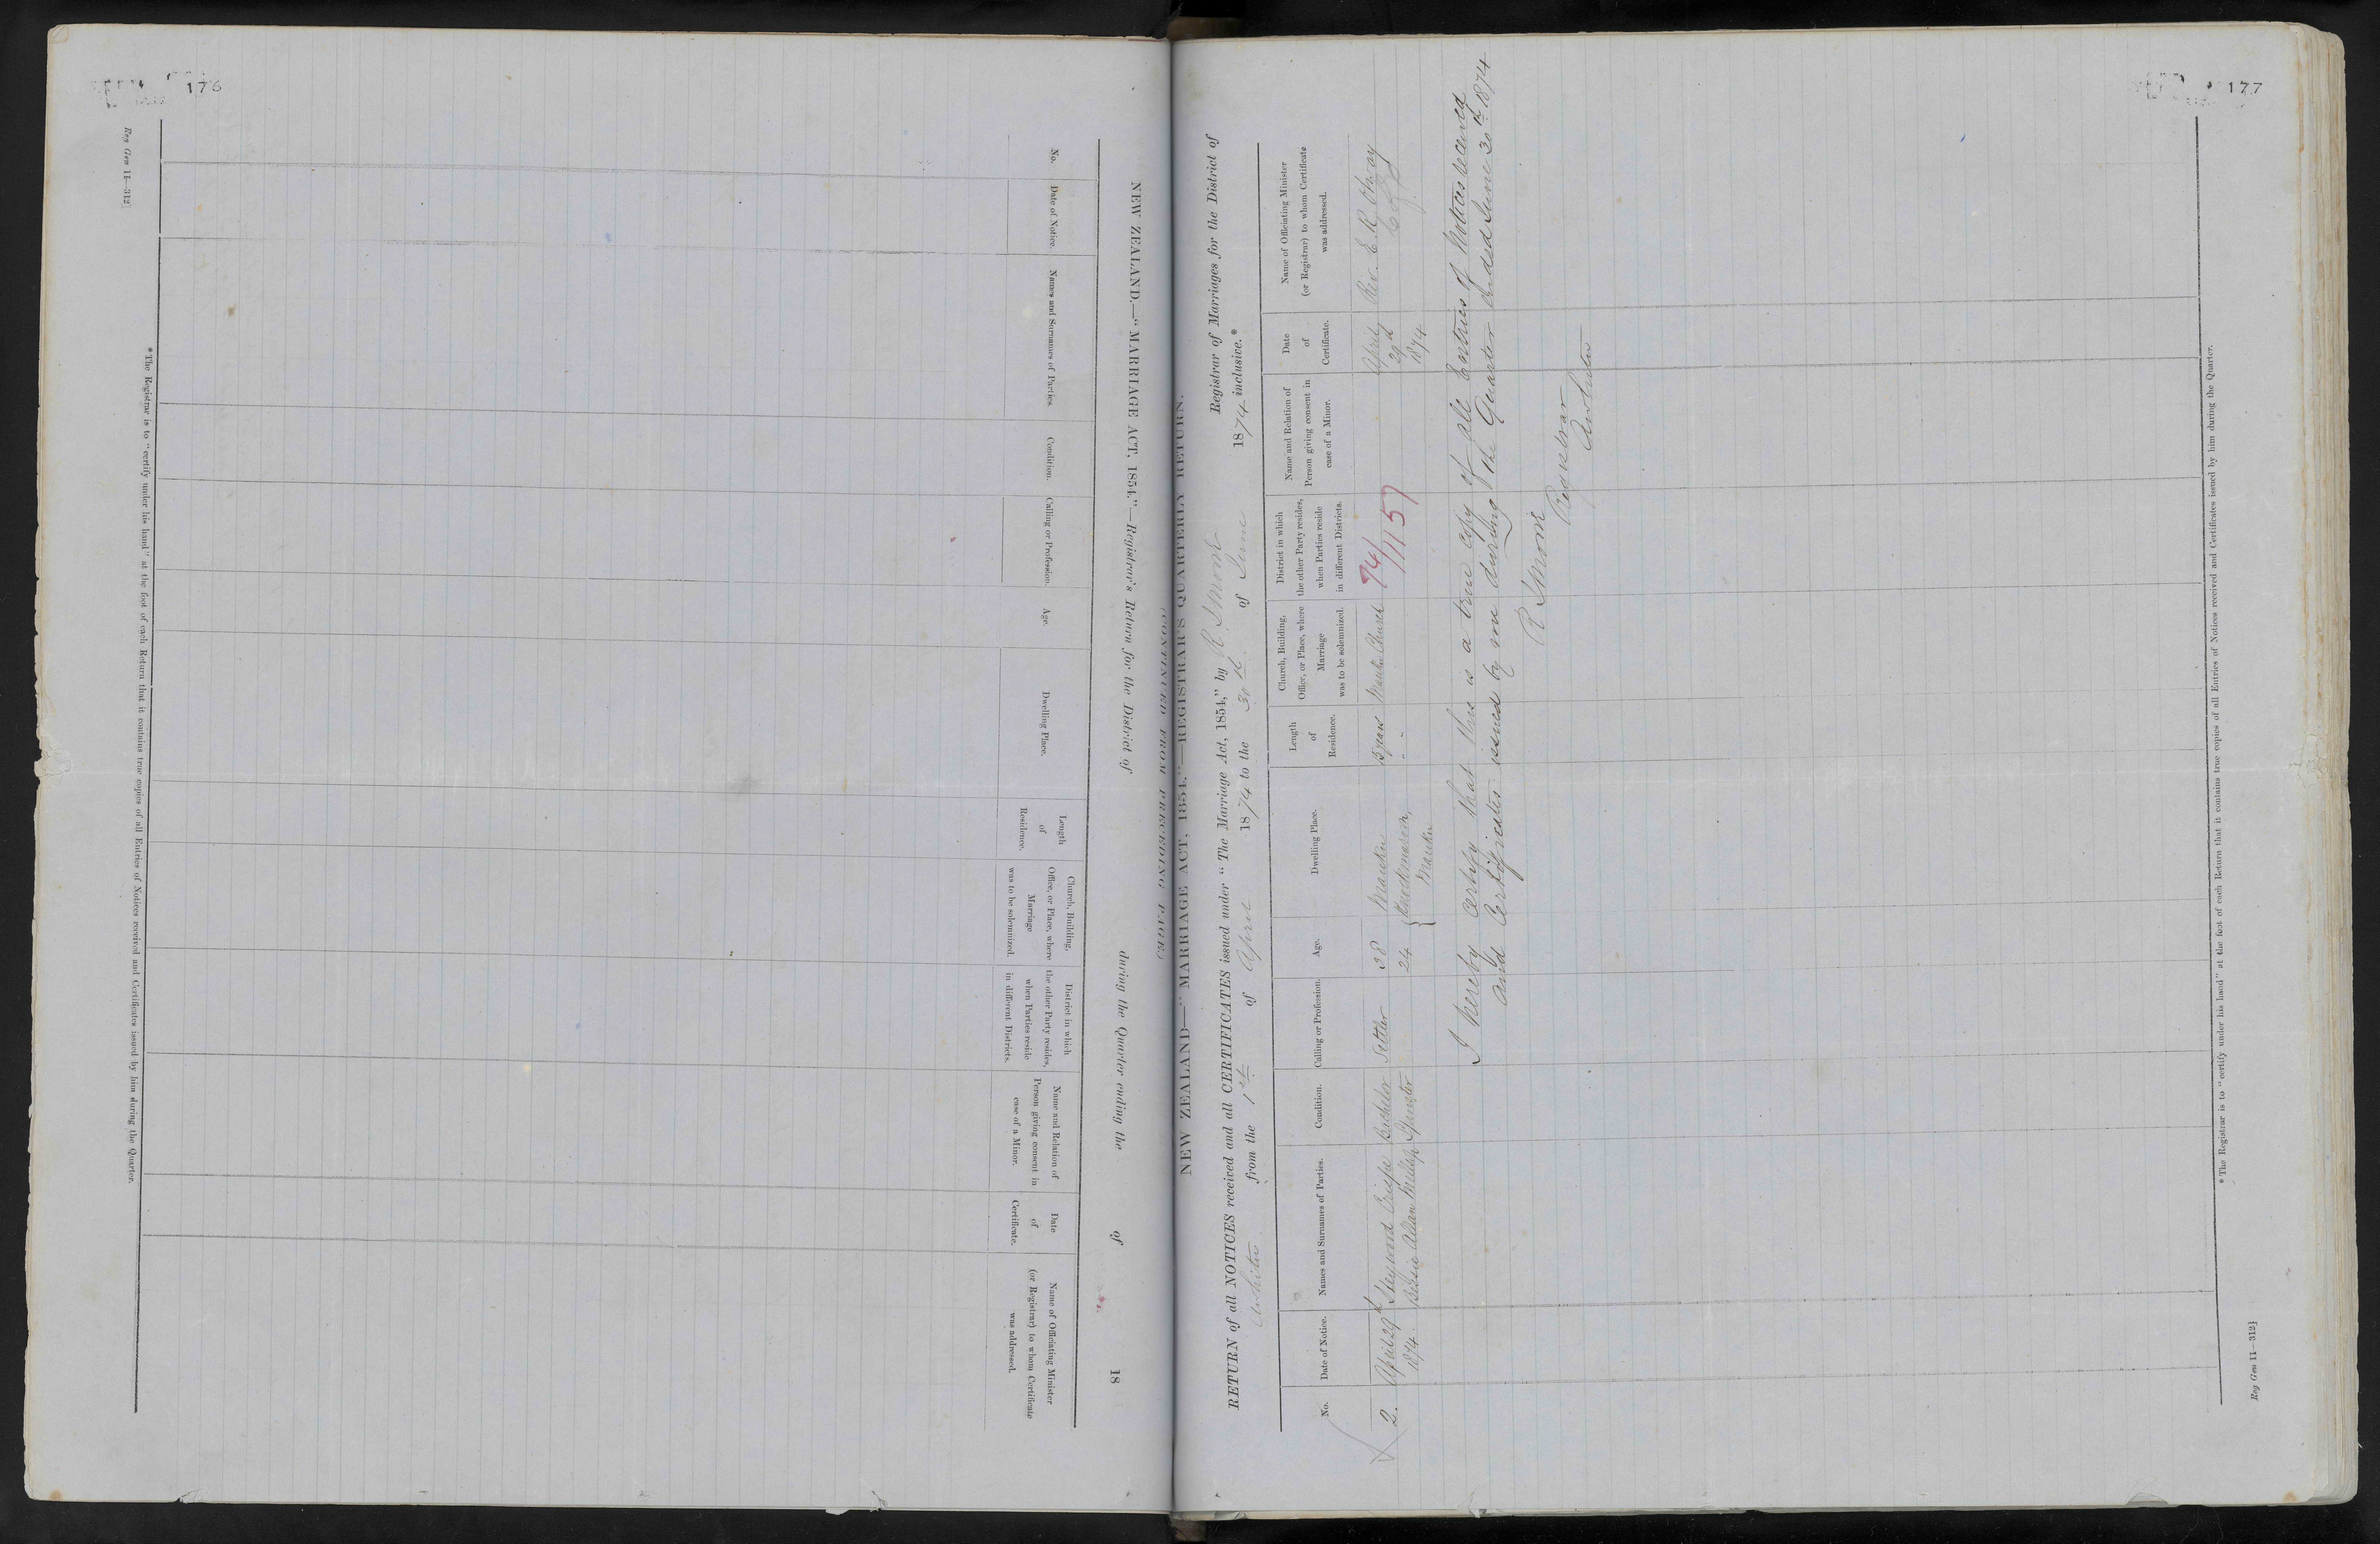 176
Reg Gen 11—312]
NEW ZEALAND.—"MARRIAGE ACT, 1854."—Registrar's Return for the District of during the Quarter ending the of 18
No.
Date of Notice.
Names and Surnames of Parties.
Condition.
Calling or Profession.
Age.
Dwelling Place.
Length
of
Residence.
Church, Building,
Office, or Place, where
Marriage
was to be solemnized.
District in which
the other Party resides,
when Parties reside
in different Districts.
Name and Relation of
Person giving consent in
case of a Minor.
Date
of
Certificate.
Name of Officiating Minister
(or Registrar) to whom Certificate
was addressed.
*The Registrar is to "certify under his hand" at the foot of each Return that it contains true copies of all Entries of Notices received and Certificates issued by him during the Quarter.
(CONTINUED FROM PRECEDING PAGE)
177
NEW ZEALAND—"MARRIAGE ACT, 1854."—REGISTRAR'S QUARTERLY RETURN.
RETURN of all NOTICES received and all CERTIFICATES issued under "The Marriage Act, 1854," by R. Registrar of Marriages for the District of
from the 1st of April 1874 to the 30th of June 1874 inclusive.*
No.
Date of Notice.
Names and Surnames of Parties.
Condition.
Calling or Profession.
Age.
Dwelling Place.
Length
of
Residence.
Church, Building,
Office, or Place, where
Marriage
was to be solemnized.
District in which
the other Party resides,
when Parties reside
in different Districts.
Name and Relation of
Person giving consent in
case of a Minor.
Date
of
Certificate.
Name of Officiating Minister
(or Registrar) to whom Certificate
was addressed.
2. April 29th Heywood Crispe Bachelor Settler 38 Mauku 15 years Mauku Church 74/1157 April Rev. E. R. Otway
1874. Bessie Spinster 24 29th
Mauku 1874
I hereby certify that this is a true copy of all Entries of Notices received
and Certificates issued by me during the Quarter ended June 30th 1874
R.
Registrar
*The Registrar is to "certify under his hand" at the foot of each Return that it contains true copies of all Entries of Notices received and Certificates issued by him during the Quarter.
Reg Gen 11—312]